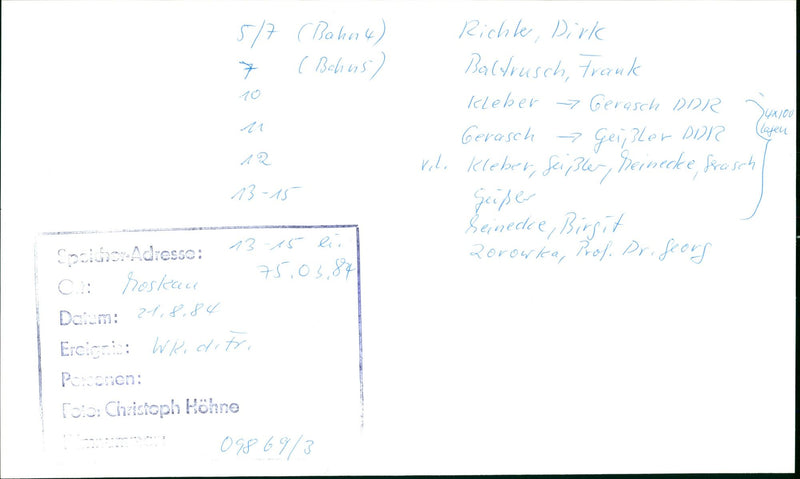 5/7 (Bahn 4) Richter, Dirk
7 (Bahn 5) Baltrusch, Frank
10 Kleber → Gerasch DDR
11 Gerasch → Geißler DDR
4x100
Lagen
12 v.l. Kleber, Geißler, Meinecke, Gerasch
13-15
Meinecke, Birgit
Zorowka, Prof. Dr. Georg
Speicher-Adresse: 13-15 li.
75.03.84
Ort: Moskau
Datum: 21.8.84
Ereignis: WK. d. Fr.
Personen:
Foto: Christoph Höhne
Filmnummer: 09869/3